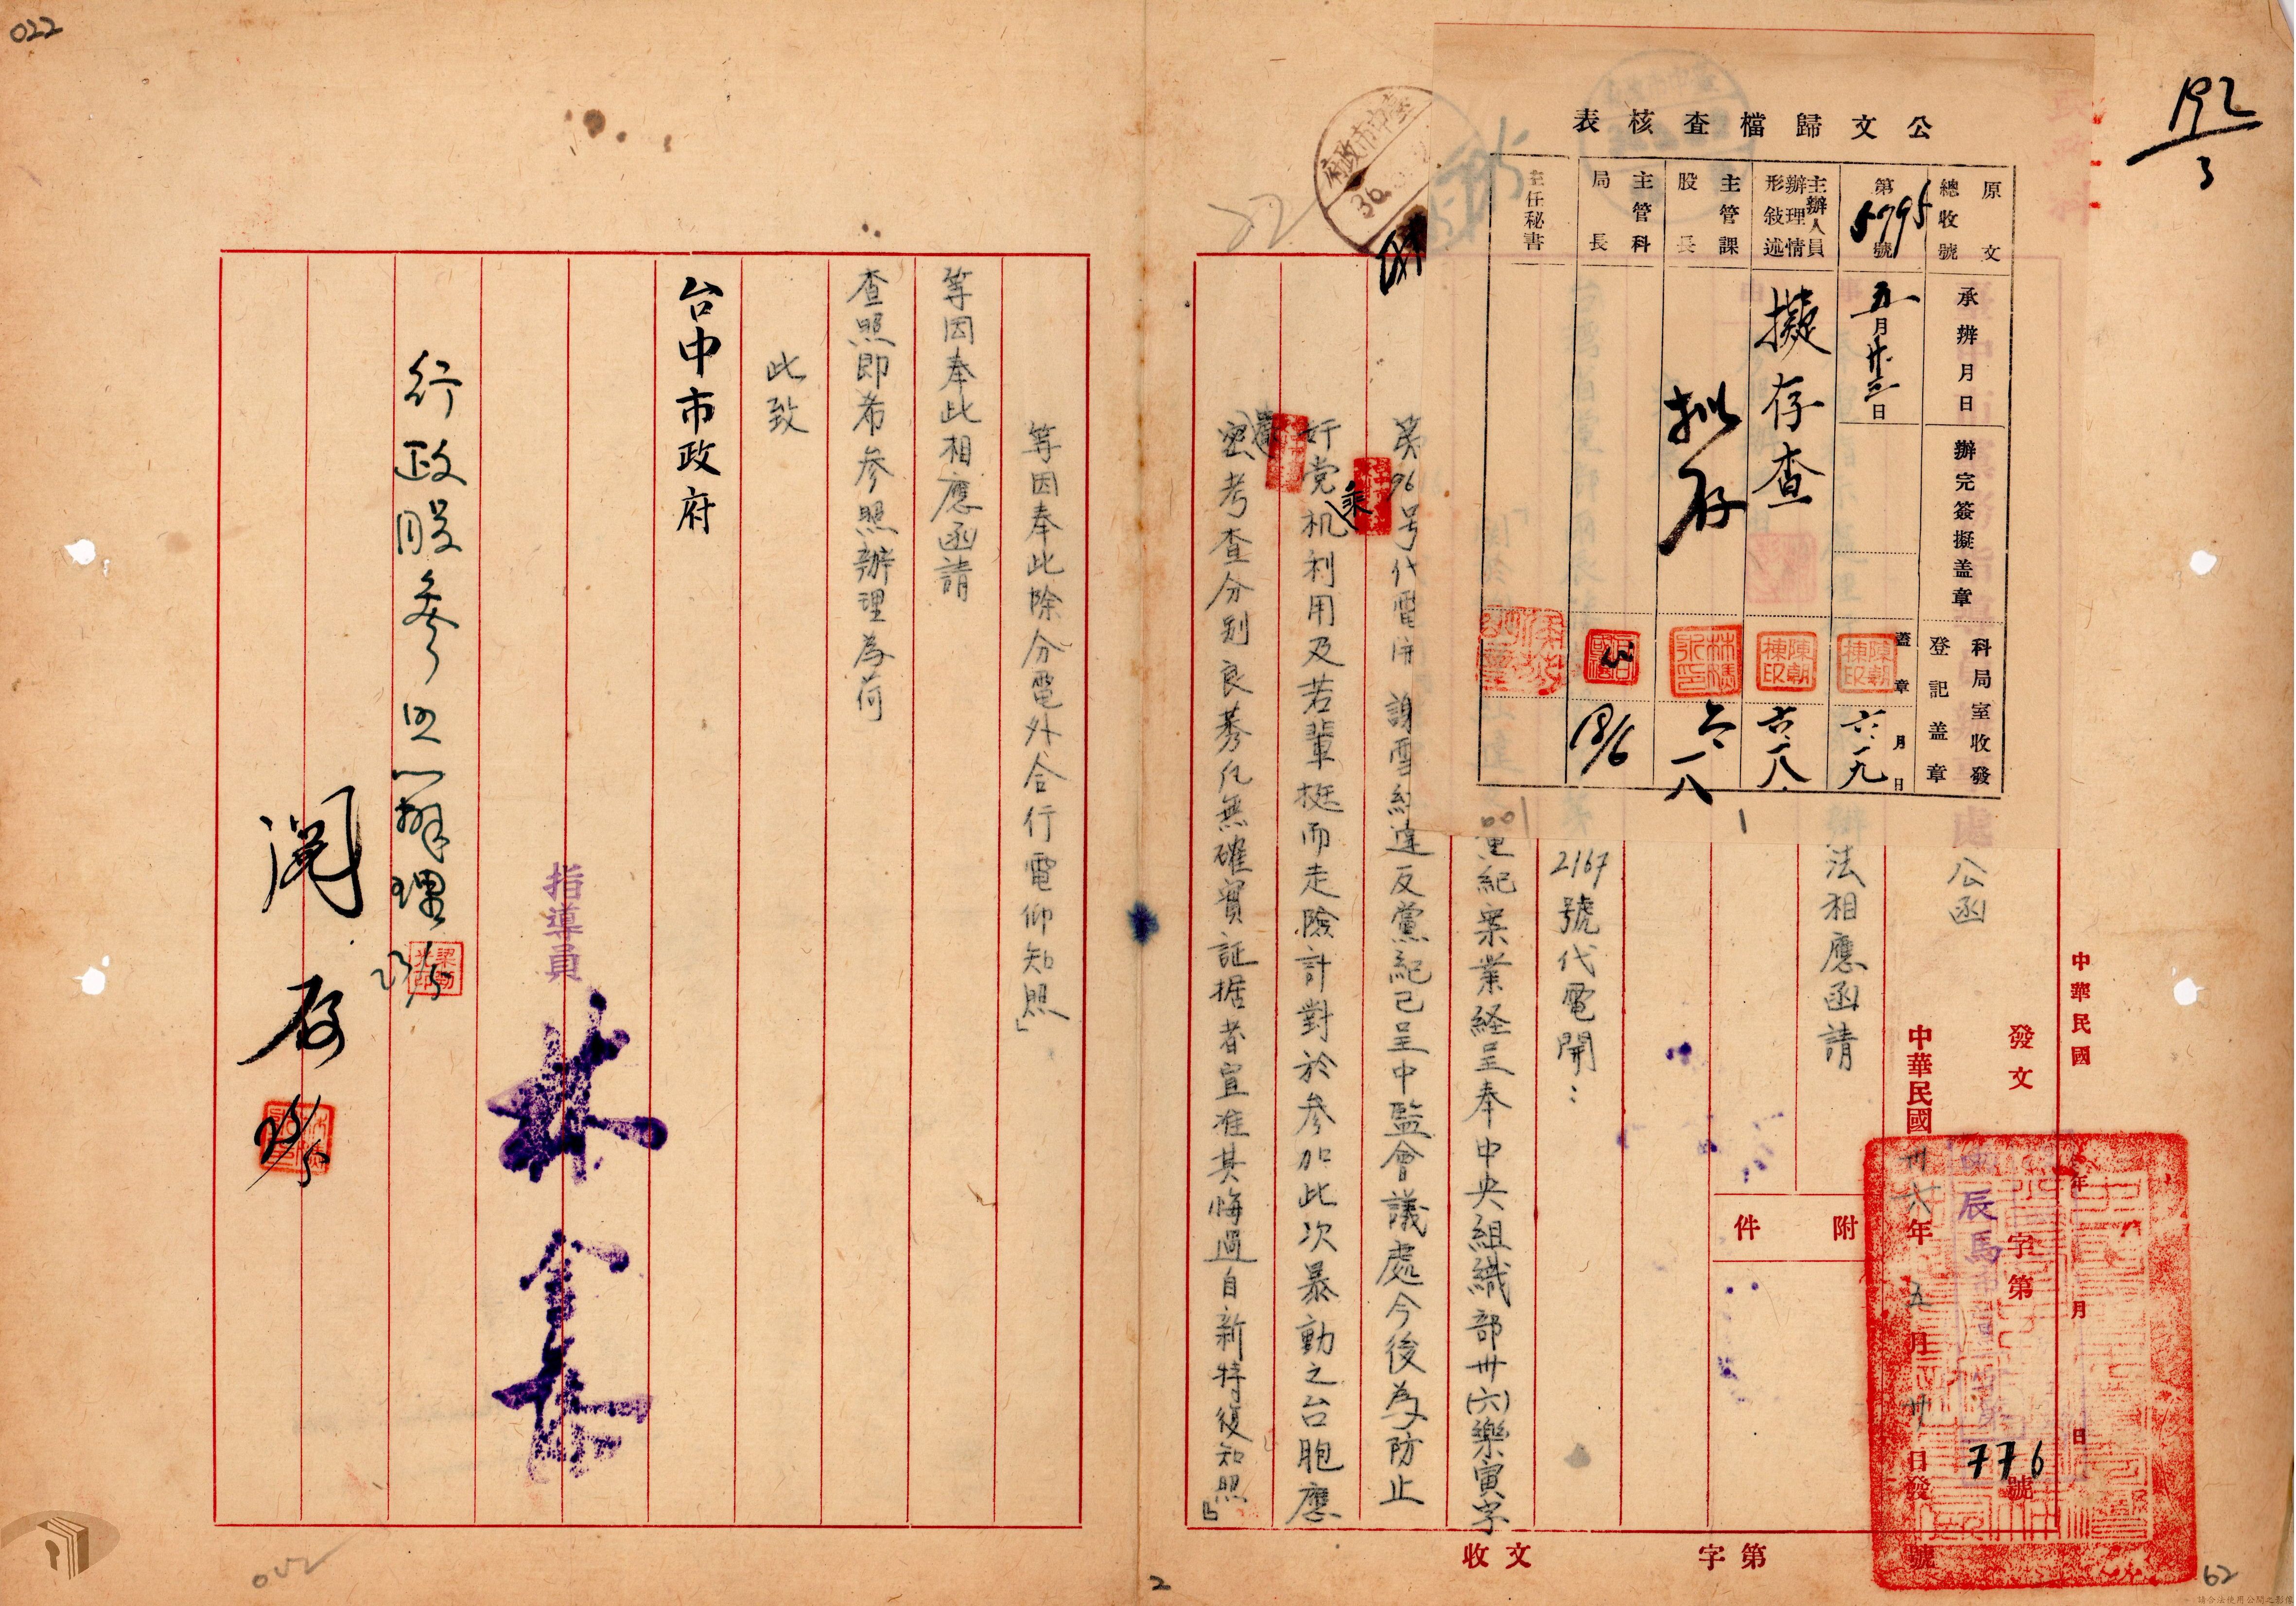 022
192
3
公文歸檔查核表
原文
總收號
承辦月日
辦完簽擬蓋章
科局室收發
登記蓋章
第5795號
五月廿三日
蓋章
陳朝棟印
六.一九
月
日
主辦人員
辦理情
形敍述
擬存查
陳朝棟印
六.一八
主管課
股長
拟存
六.一八
主管科
局長
18/6
主任秘書
臺中市政府
36
公函
中華民國
年
月
日
發文
字第
776號
辰馬
中華民國卅六年五月廿日發
辦法相應函請
附件
2167號代電開：
党紀案業経呈奉中央組織部卅(六)樂寅字
第96号代電開謝雪紅違反黨紀已呈中監會議處今後為防止
奸党乘机利用及若輩梃而走險計對於參加此次暴動之台胞應
考查分别良莠凢無確實証据者宜准其悔過自新特復知照」
等因奉此除分電外合行電仰知照」
等因奉此相應函請
查照即希參照辦理為荷
此致
台中市政府
指導員
林金
行政股參照辦理
閱
存
收文
字第
號
2
62
請合法使用公開之影像